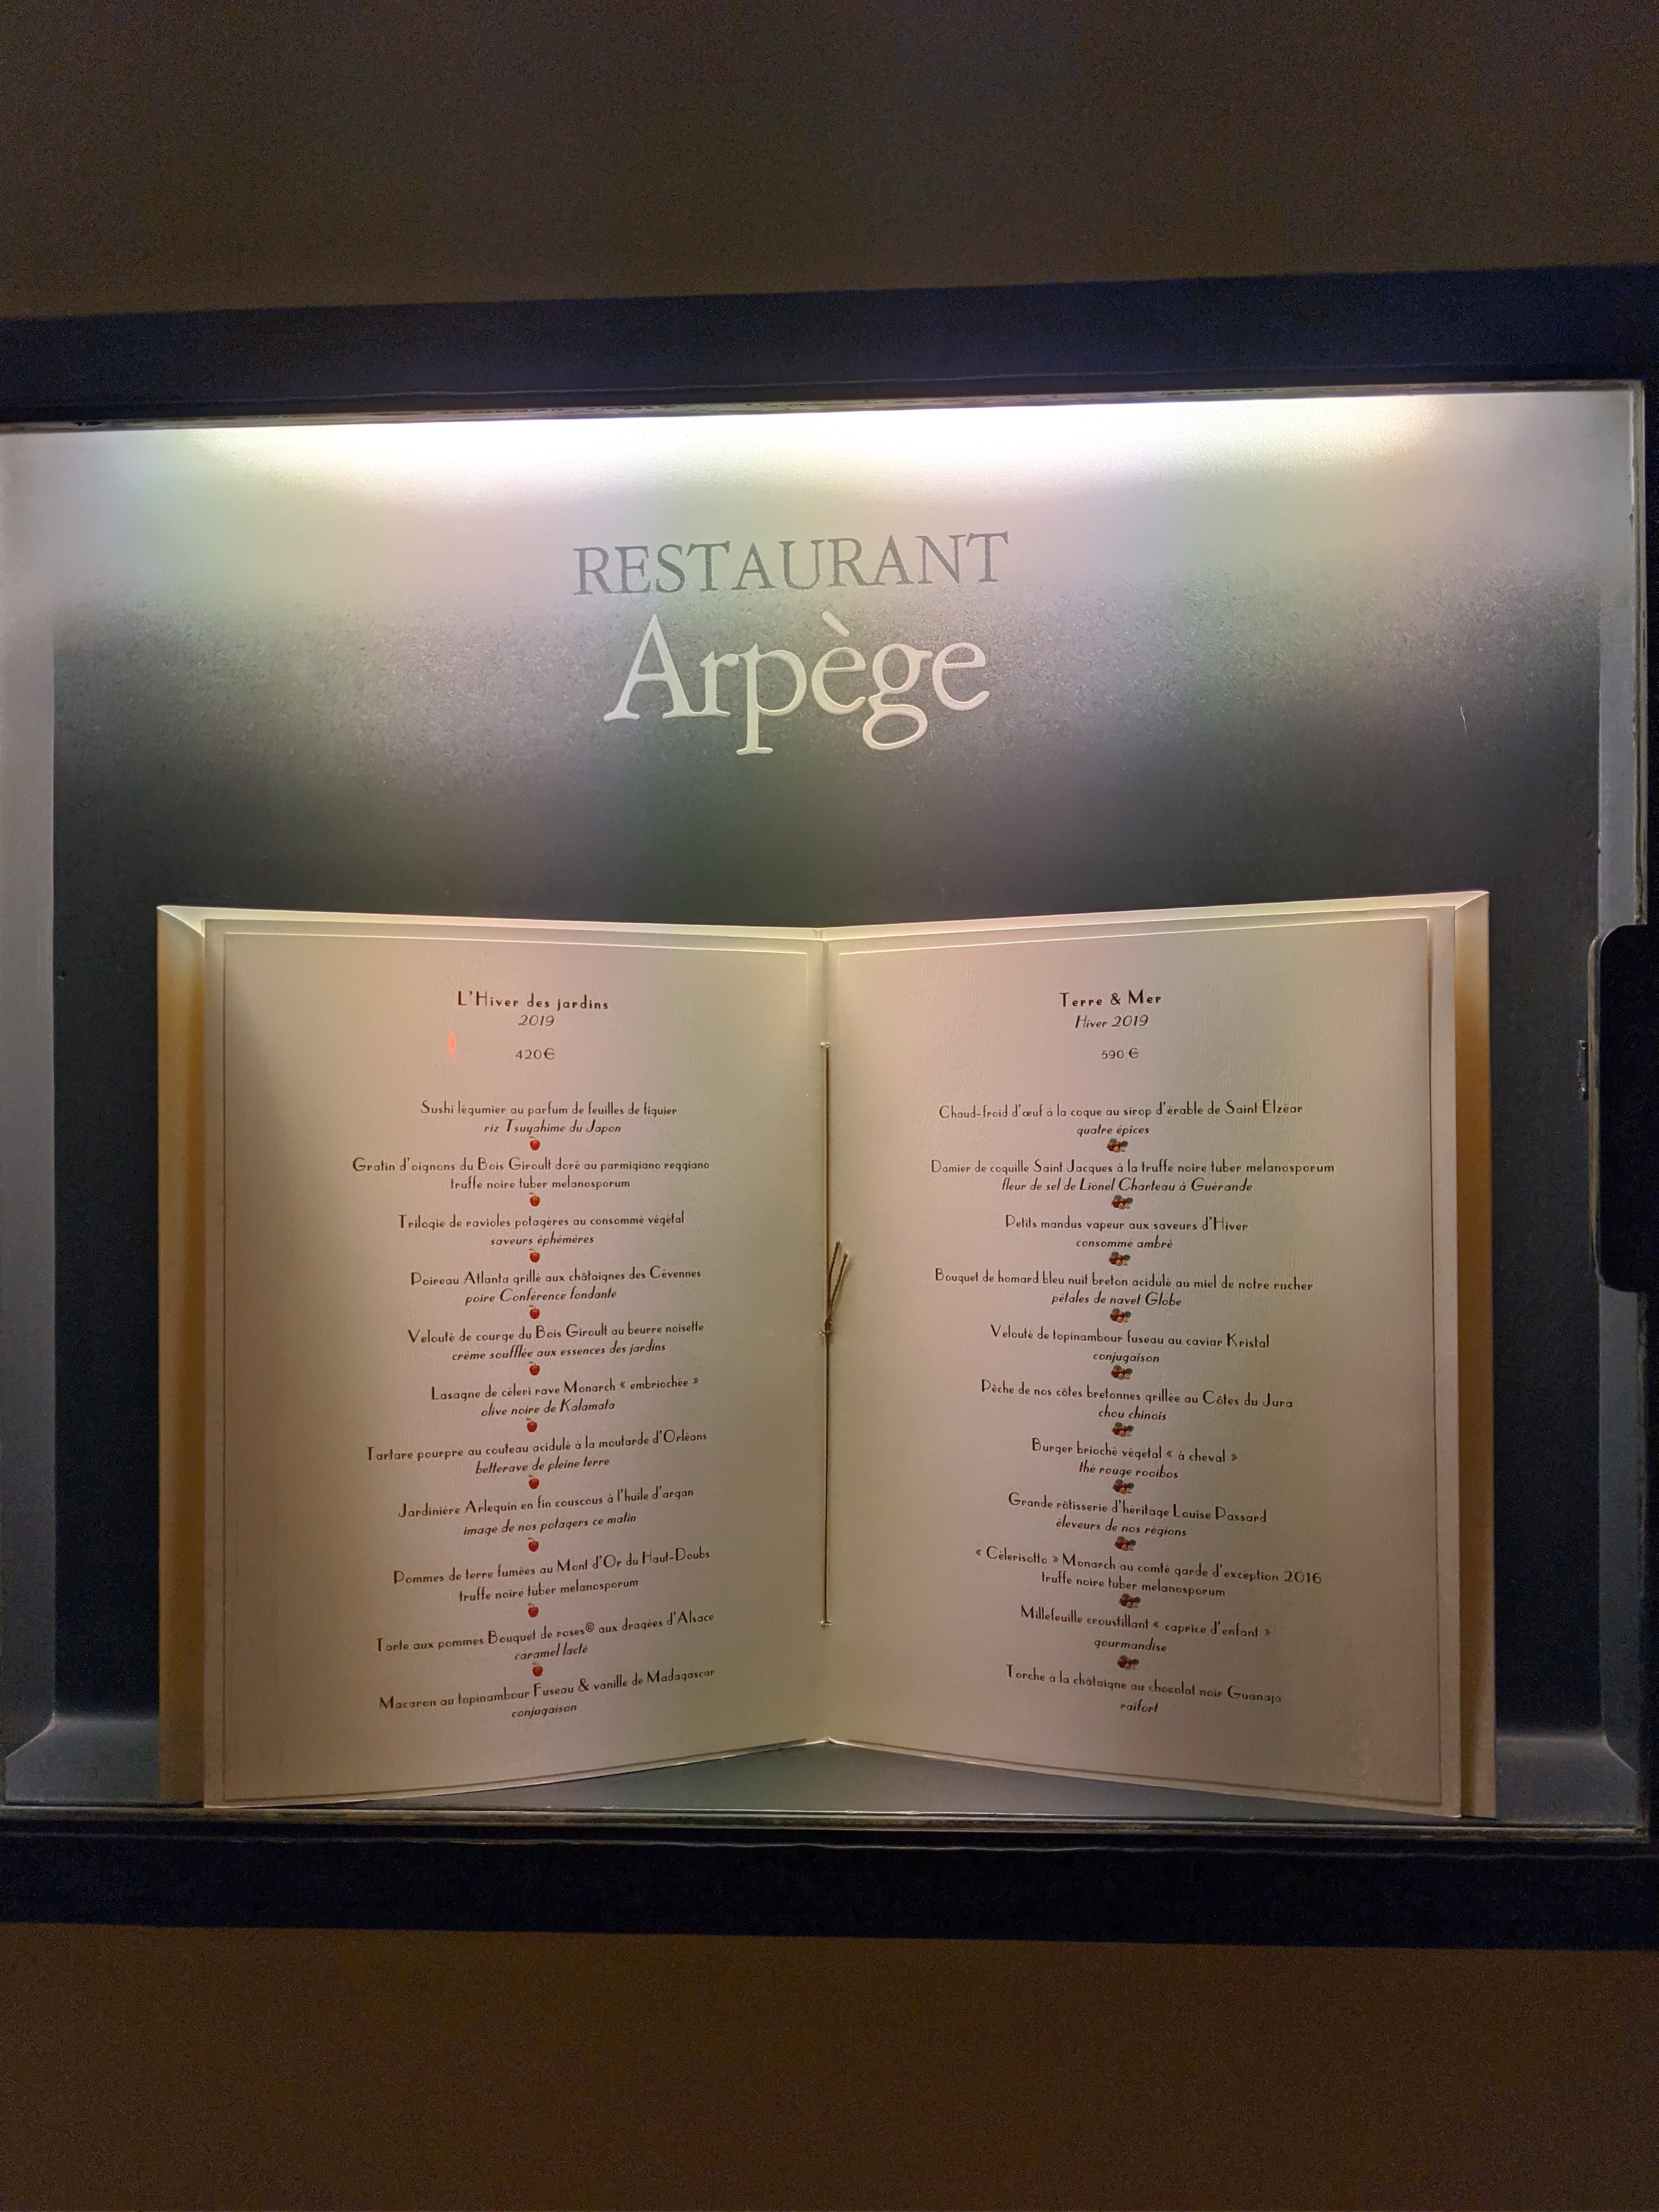 RESTAURANT
Arpège
L'Hiver des jardins
2019
420€
Sushi légumier au parfum de feuilles de figuier
riz Tsuyahime du Japon
Gratin d'oignons du Bois Giroult doré au parmigiano reggiano
truffe noire tuber melanosporum
Trilogie de ravioles potagères au consommé végétal
saveurs éphémères
Poireau Atlanta grillé aux châtaignes des Cévennes
poire Conférence fondante
Velouté de courge du Bois Giroult au beurre noisette
crème soufflée aux essences des jardins
Lasagne de céleri rave Monarch « embriochée »
olive noire de Kalamata
Tartare pourpre au couteau acidulé à la moutarde d'Orléans
betterave de pleine terre
Jardinière Arlequin en fin couscous à l'huile d'argan
image de nos potagers ce matin
Pommes de terre fumées au Mont d'Or du Haut-Doubs
truffe noire tuber melanosporum
Tarte aux pommes Bouquet de roses© aux dragées d'Alsace
caramel lacté
Macaron au topinambour Fuseau & vanille de Madagascar
conjugaison
Terre & Mer
Hiver 2019
590 €
Chaud-froid d'œuf à la coque au sirop d'érable de Saint Elzéar
quatre épices
Damier de coquille Saint Jacques à la truffe noire tuber melanosporum
fleur de sel de Lionel Charteau à Guérande
Petits mandus vapeur aux saveurs d'Hiver
consommé ambré
Bouquet de homard bleu nuit breton acidulé au miel de notre rucher
pétales de navet Globe
Velouté de topinambour fuseau au caviar Kristal
conjugaison
Pèche de nos côtes bretonnes grillée au Côtes du Jura
chou chinois
Burger brioché végétal « à cheval »
thé rouge rooibos
Grande rôtisserie d'héritage Louise Passard
éleveurs de nos régions
« Célerisotto » Monarch au comté garde d'exception 2016
truffe noire tuber melanosporum
Millefeuille croustillant « caprice d'enfant »
gourmandise
Torche à la châtaigne au chocolat noir Guanaja
raifort